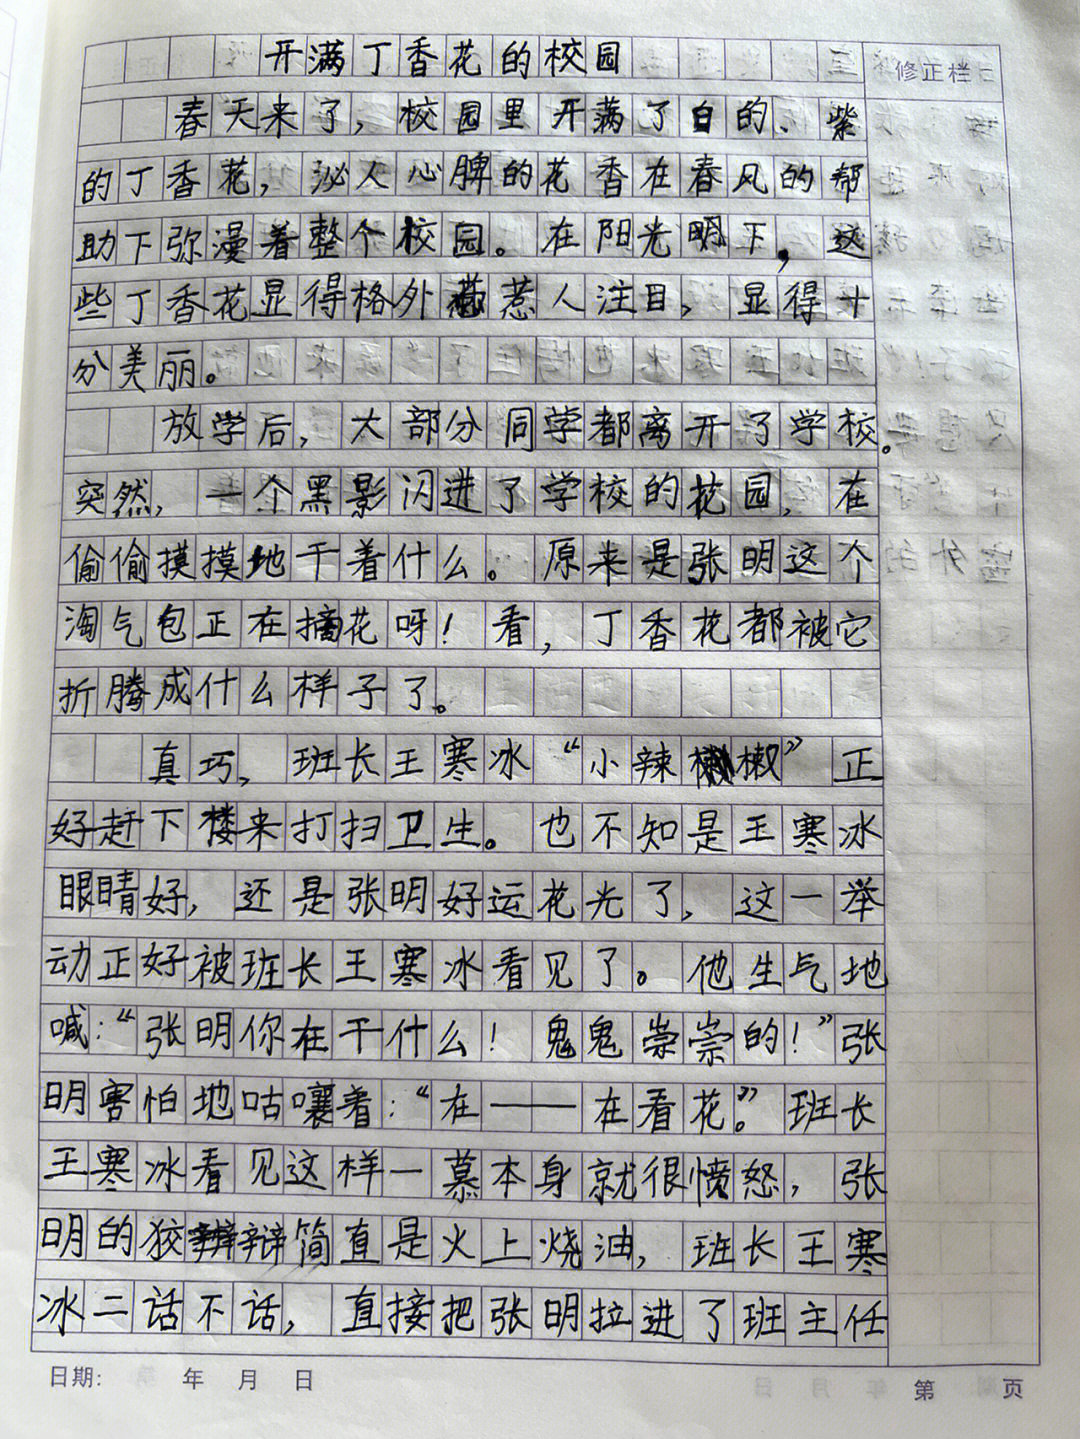 开满丁香花的校园
修正栏
春天来了，校园里开满了白的、紫
的丁香花，泌人心脾的花香在春风的帮
助下弥漫着整个校园。在阳光明下，这
些丁香花显得格外惹人注目，显得十
分美丽。
放学后，大部分同学都离开了学校。
突然，一个黑影闪进了学校的花园，在
偷偷摸摸地干着什么。原来是张明这个
淘气包正在摘花呀！看，丁香花都被它
折腾成什么样子了。
真巧，班长王寒冰“小辣椒”正
好赶下楼来打扫卫生。也不知是王寒冰
眼睛好，还是张明好运花光了，这一举
动正好被班长王寒冰看见了。他生气地
喊：“张明你在干什么！鬼鬼崇崇的！”张
明害怕地咕嚷着：“在——在看花。”班长
王寒冰看见这样一慕本身就很愤怒，张
明的狡辩简直是火上烧油，班长王寒
冰二话不话，直接把张明拉进了班主任
日期： 年 月 日
第 页